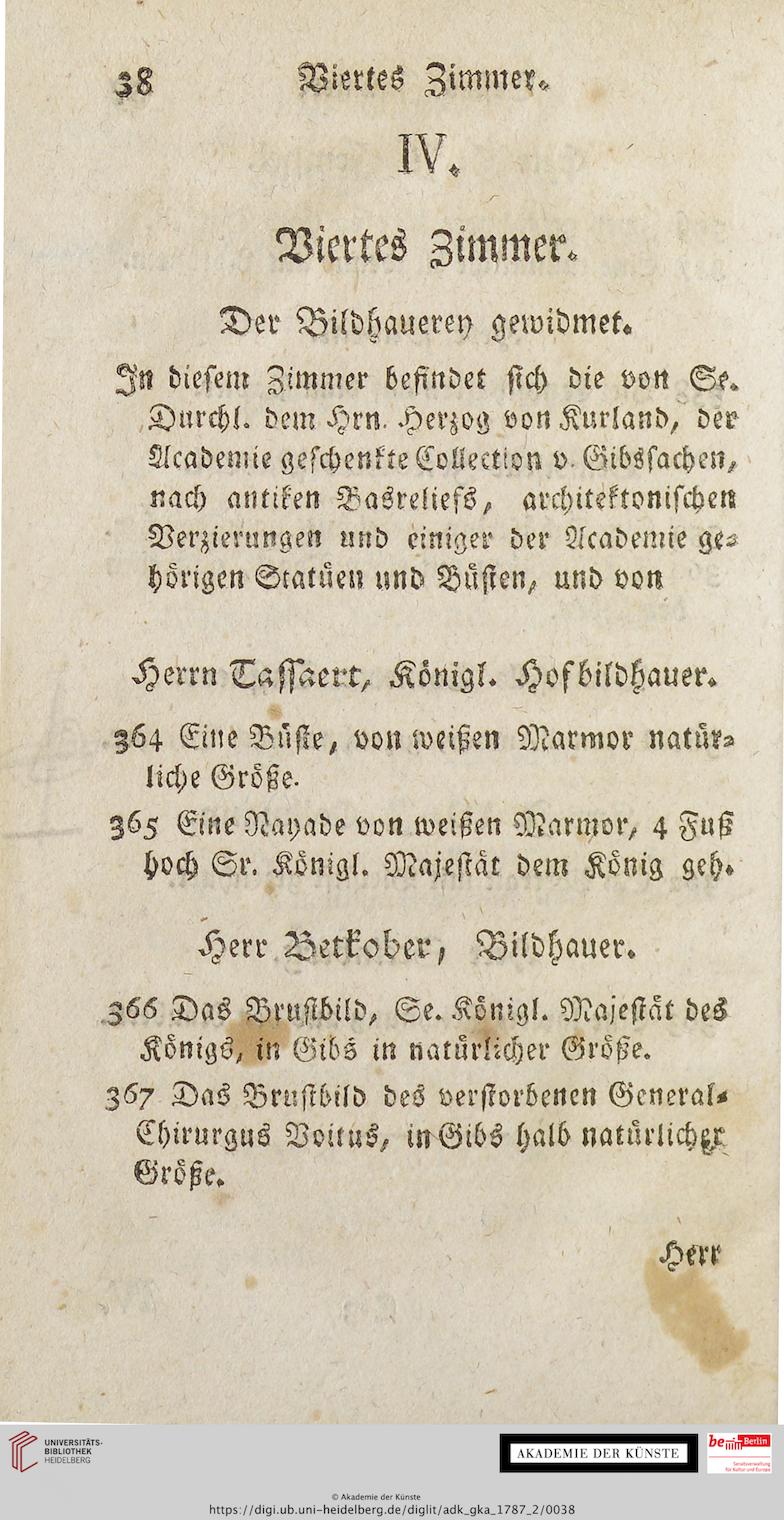 38 Viertes Zimmer.
IV.
Viertes Zimmer.
Der Bildhauerey gewidmet.
In diesem Zimmer befindet sich die von Se.
Durchl. dem Hrn. Herzog von Kurland, der
Academie geschenkte Collection v. Gibssachen,
nach antiken Basreliefs, architektonischen
Verzierungen und einiger der Academie ge-
hörigen Statüen und Büsten, und von
Herrn Tassaert, Königl. Hofbildhauer.
364 Eine Büste, von weißen Marmor natür-
liche Größe.
365 Eine Nayade von weißen Marmor, 4 Fuß
hoch Sr. Königl. Majestät dem König geh.
Herr Betkober, Bildhauer.
366 Das Brustbild, Se. Königl. Majestät des
Königs, in Gibs in natürlicher Größe.
367 Das Brustbild des verstorbenen General-
Chirurgus Voitus, in Gibs halb natürlicher
Größe.
Herr
UNIVERSITÄTS-
BIBLIOTHEK
HEIDELBERG
AKADEMIE DER KÜNSTE
be Berlin
Senatsverwaltung
für Kultur und Europa
© Akademie der Künste
https://digi.ub.uni-heidelberg.de/diglit/adk_gka_1787_2/0038